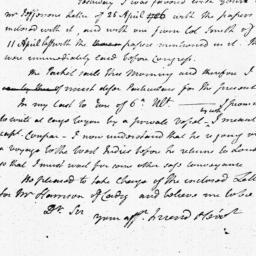 Mr Jefferson letter of 25 April 1786 with the papers
enclosed with it, and with one from Col Smith of
11 April with the papers mentioned in it. The
were immediately laid before Congress.
The Packet sails this Morning and therefore I
must defer Particulars for the present
In my last to you of 6th Ult I
to write at large to you by a private vessel - I meant
Compar - I now understand that he is going on
a voyage to the West Indies before he returns to Lond
so that I must wait for some other safe conveyance
Be pleased to take charge of the enclosed Lette
for Mr Harrison of Cadiz and believe me to be
Dr Sir
Your affte Friend